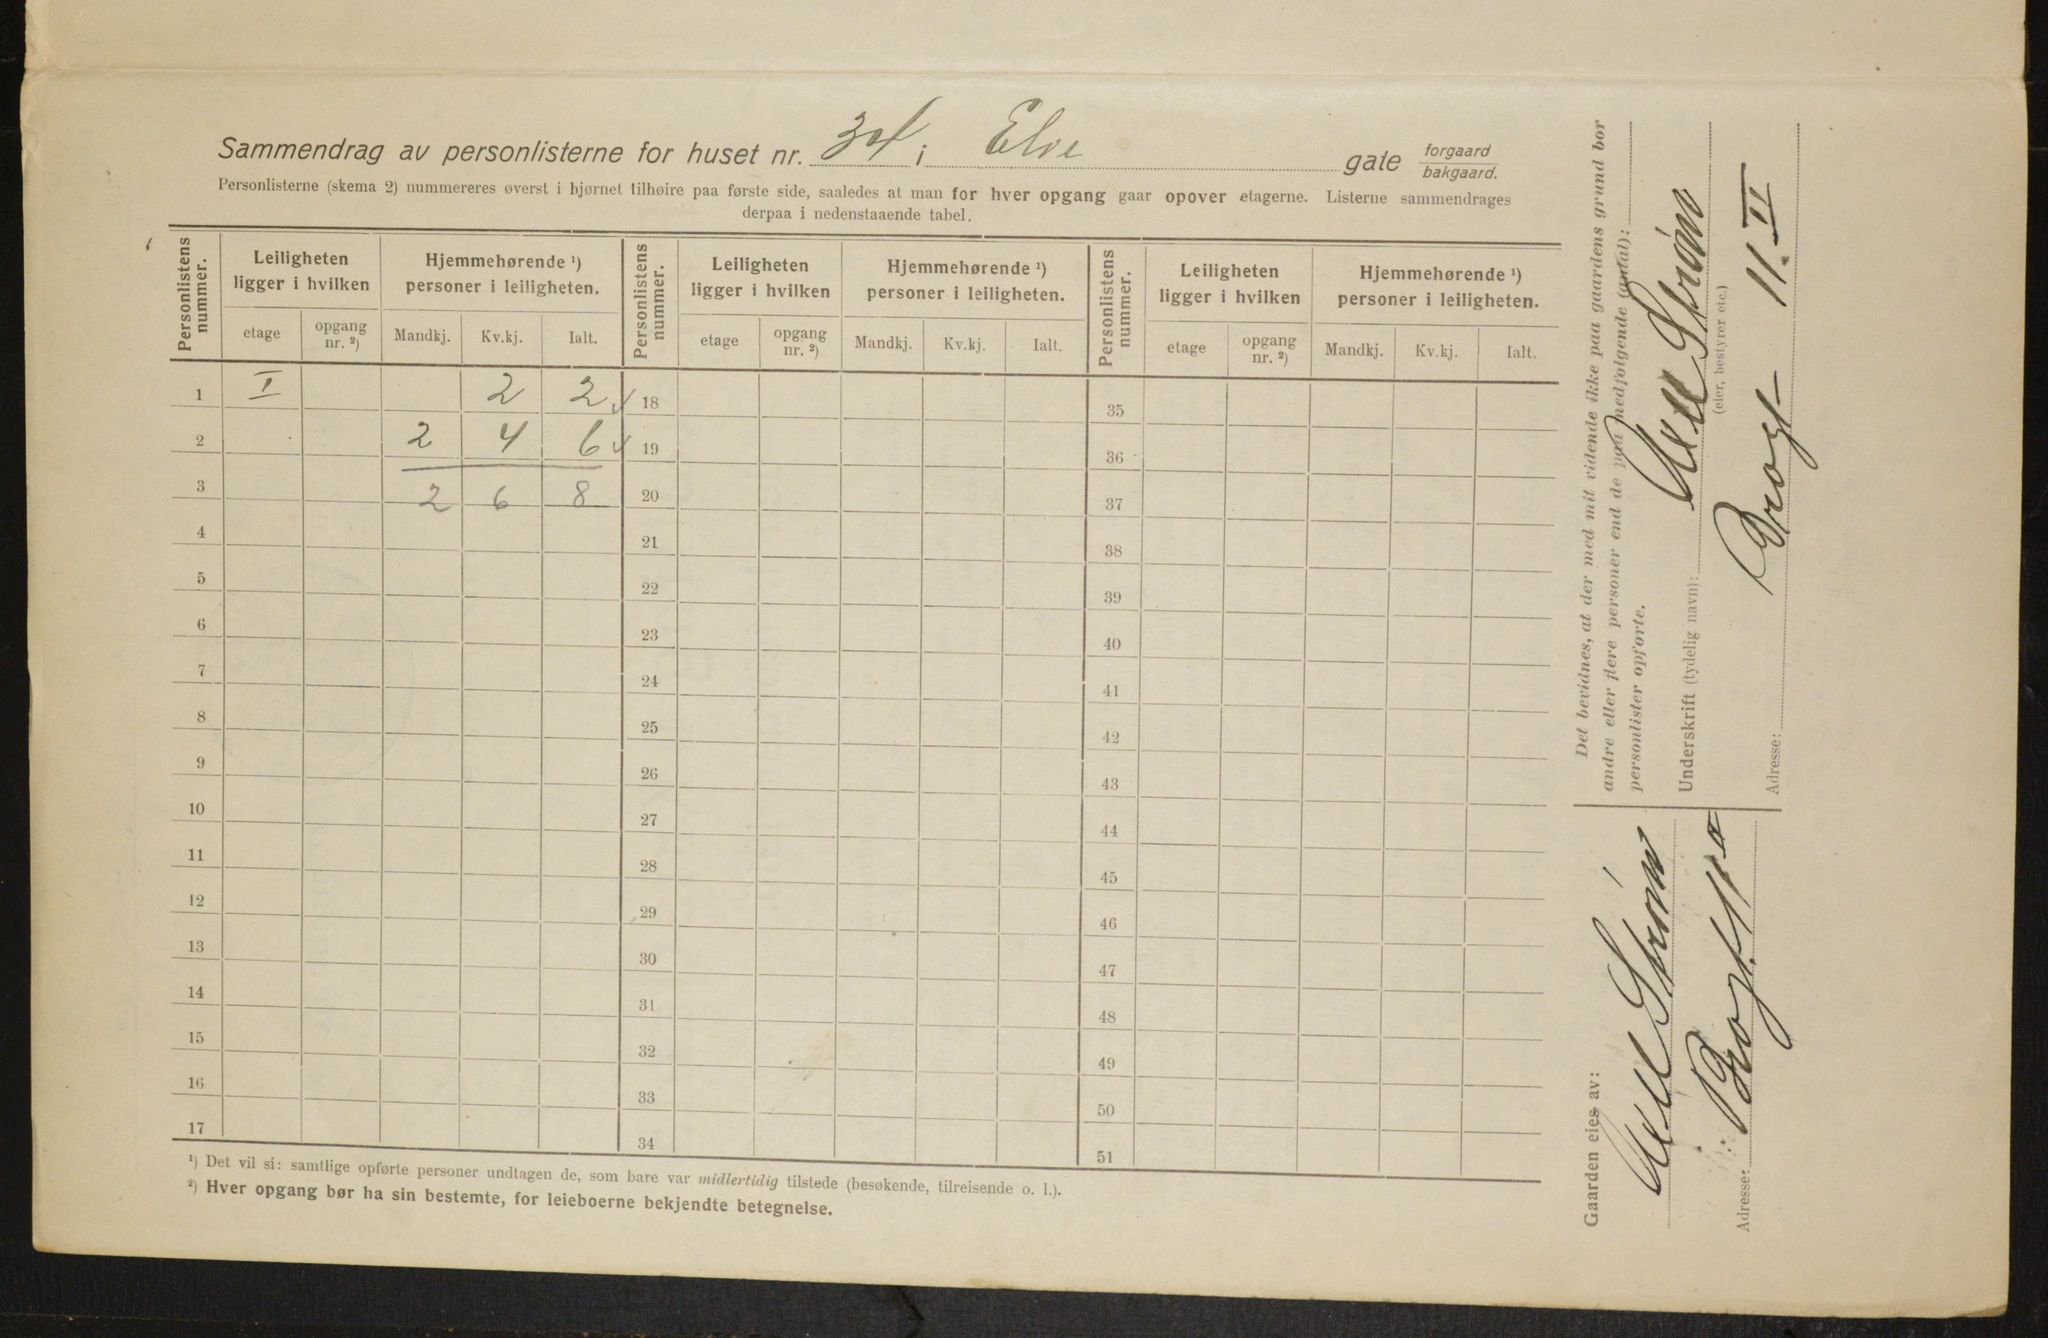 Sammendrag av personlisterne for huset nr. 34 i Elve gate forgaard bakgaard.
Personlisterne (skema 2) nummereres øverst i hjørnet tilhøire paa første side, saaledes at man for hver opgang gaar opover etagerne. Listerne sammendrages
derpaa i nedenstaaende tabel.
Personlistens nummer. Leiligheten ligger i hvilken Hjemmehørende ¹) personer i leiligheten. Personlistens nummer. Leiligheten ligger i hvilken Hjemmehørende ¹) personer i leiligheten. Personlistens nummer. Leiligheten ligger i hvilken Hjemmehørende ¹) personer i leiligheten.
etage opgang nr. ²) Mandkj. Kv.kj. Ialt. etage opgang nr. ²) Mandkj. Kv.kj. Ialt. etage opgang nr. ²) Mandkj. Kv.kj. Ialt.
1 I 2 2 18 35
2 2 4 6 19 36
3 2 6 8 20 37
4 21 38
5 22 39
6 23 40
7 24 41
8 25 42
9 26 43
10 27 44
11 28 45
12 29 46
13 30 47
14 31 48
15 32 49
16 33 50
17 34 51
¹) Det vil si: samtlige opførte personer undtagen de, som bare var midlertidig tilstede (besøkende, tilreisende o. l.).
²) Hver opgang bør ha sin bestemte, for leieboerne bekjendte betegnelse.
Det bevidnes, at der med mit vidende ikke paa gaardens grund bor
andre eller flere personer end de paa medfølgende (antal):
personlister opførte.
Underskrift (tydelig navn): Strøm
(eier, bestyrer etc.)
Adresse: 11. II
Gaarden eies av: Strøm
Adresse: